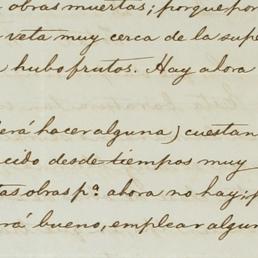 obras muertas; porque por
veta muy cerca de la supe
hubo frutos. Hay ahora
erá hacer alguna) cuestan
cido desde tiempos muy
as obras pª. ahora no hay;
rá bueno, emplear algun